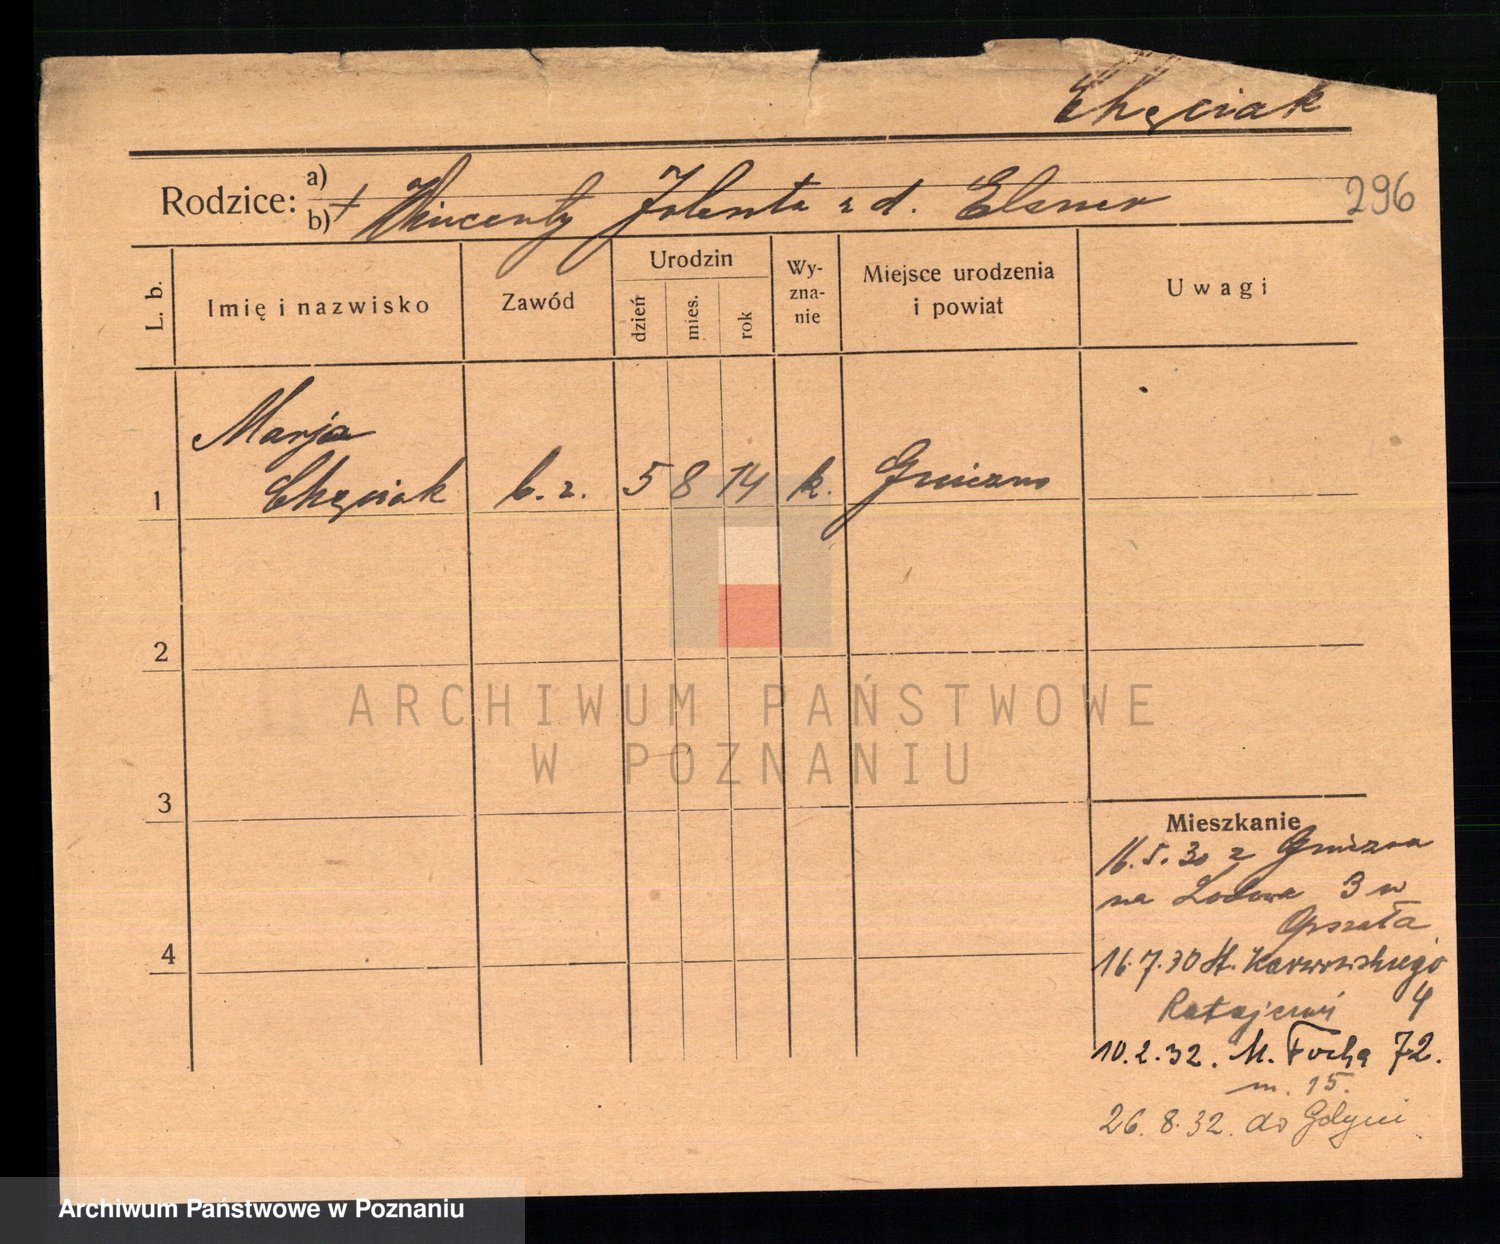 Chęciak
Rodzice: a)
b) + Wincenty Jolenta z d. Elsner
296
L. b.
Imię i nazwisko
Zawód
Urodzin
dzień
mies.
rok
Wy-
zna-
nie
Miejsce urodzenia
i powiat
Uwagi
Marja
1 Chęciak b. z. 5 8 14 k. Gniezno
2
3
4
Mieszkanie
16.5.30 z Gniezna
na Łodowa 3 u
16.7.30 St. Karwowskiego
Ratajczak 4
10.2.32. M. Focha 72.
m. 15.
26.8.32. do Gdyni
ARCHIWUM PAŃSTWOWE
W POZNANIU
Archiwum Państwowe w Poznaniu